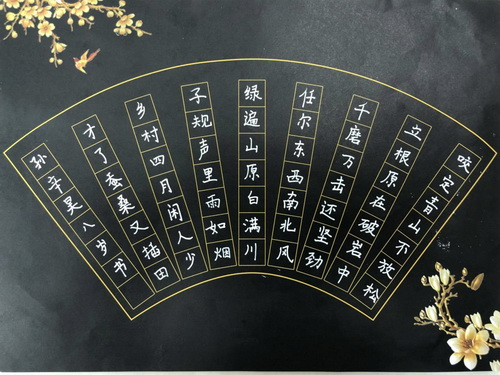 咬定青山不放松
立根原在破岩中
千磨万击还坚劲
任尔东西南北风
绿遍山原白满川
子规声里雨如烟
乡村四月闲人少
才了蚕桑又插田
孙辛昊八岁书